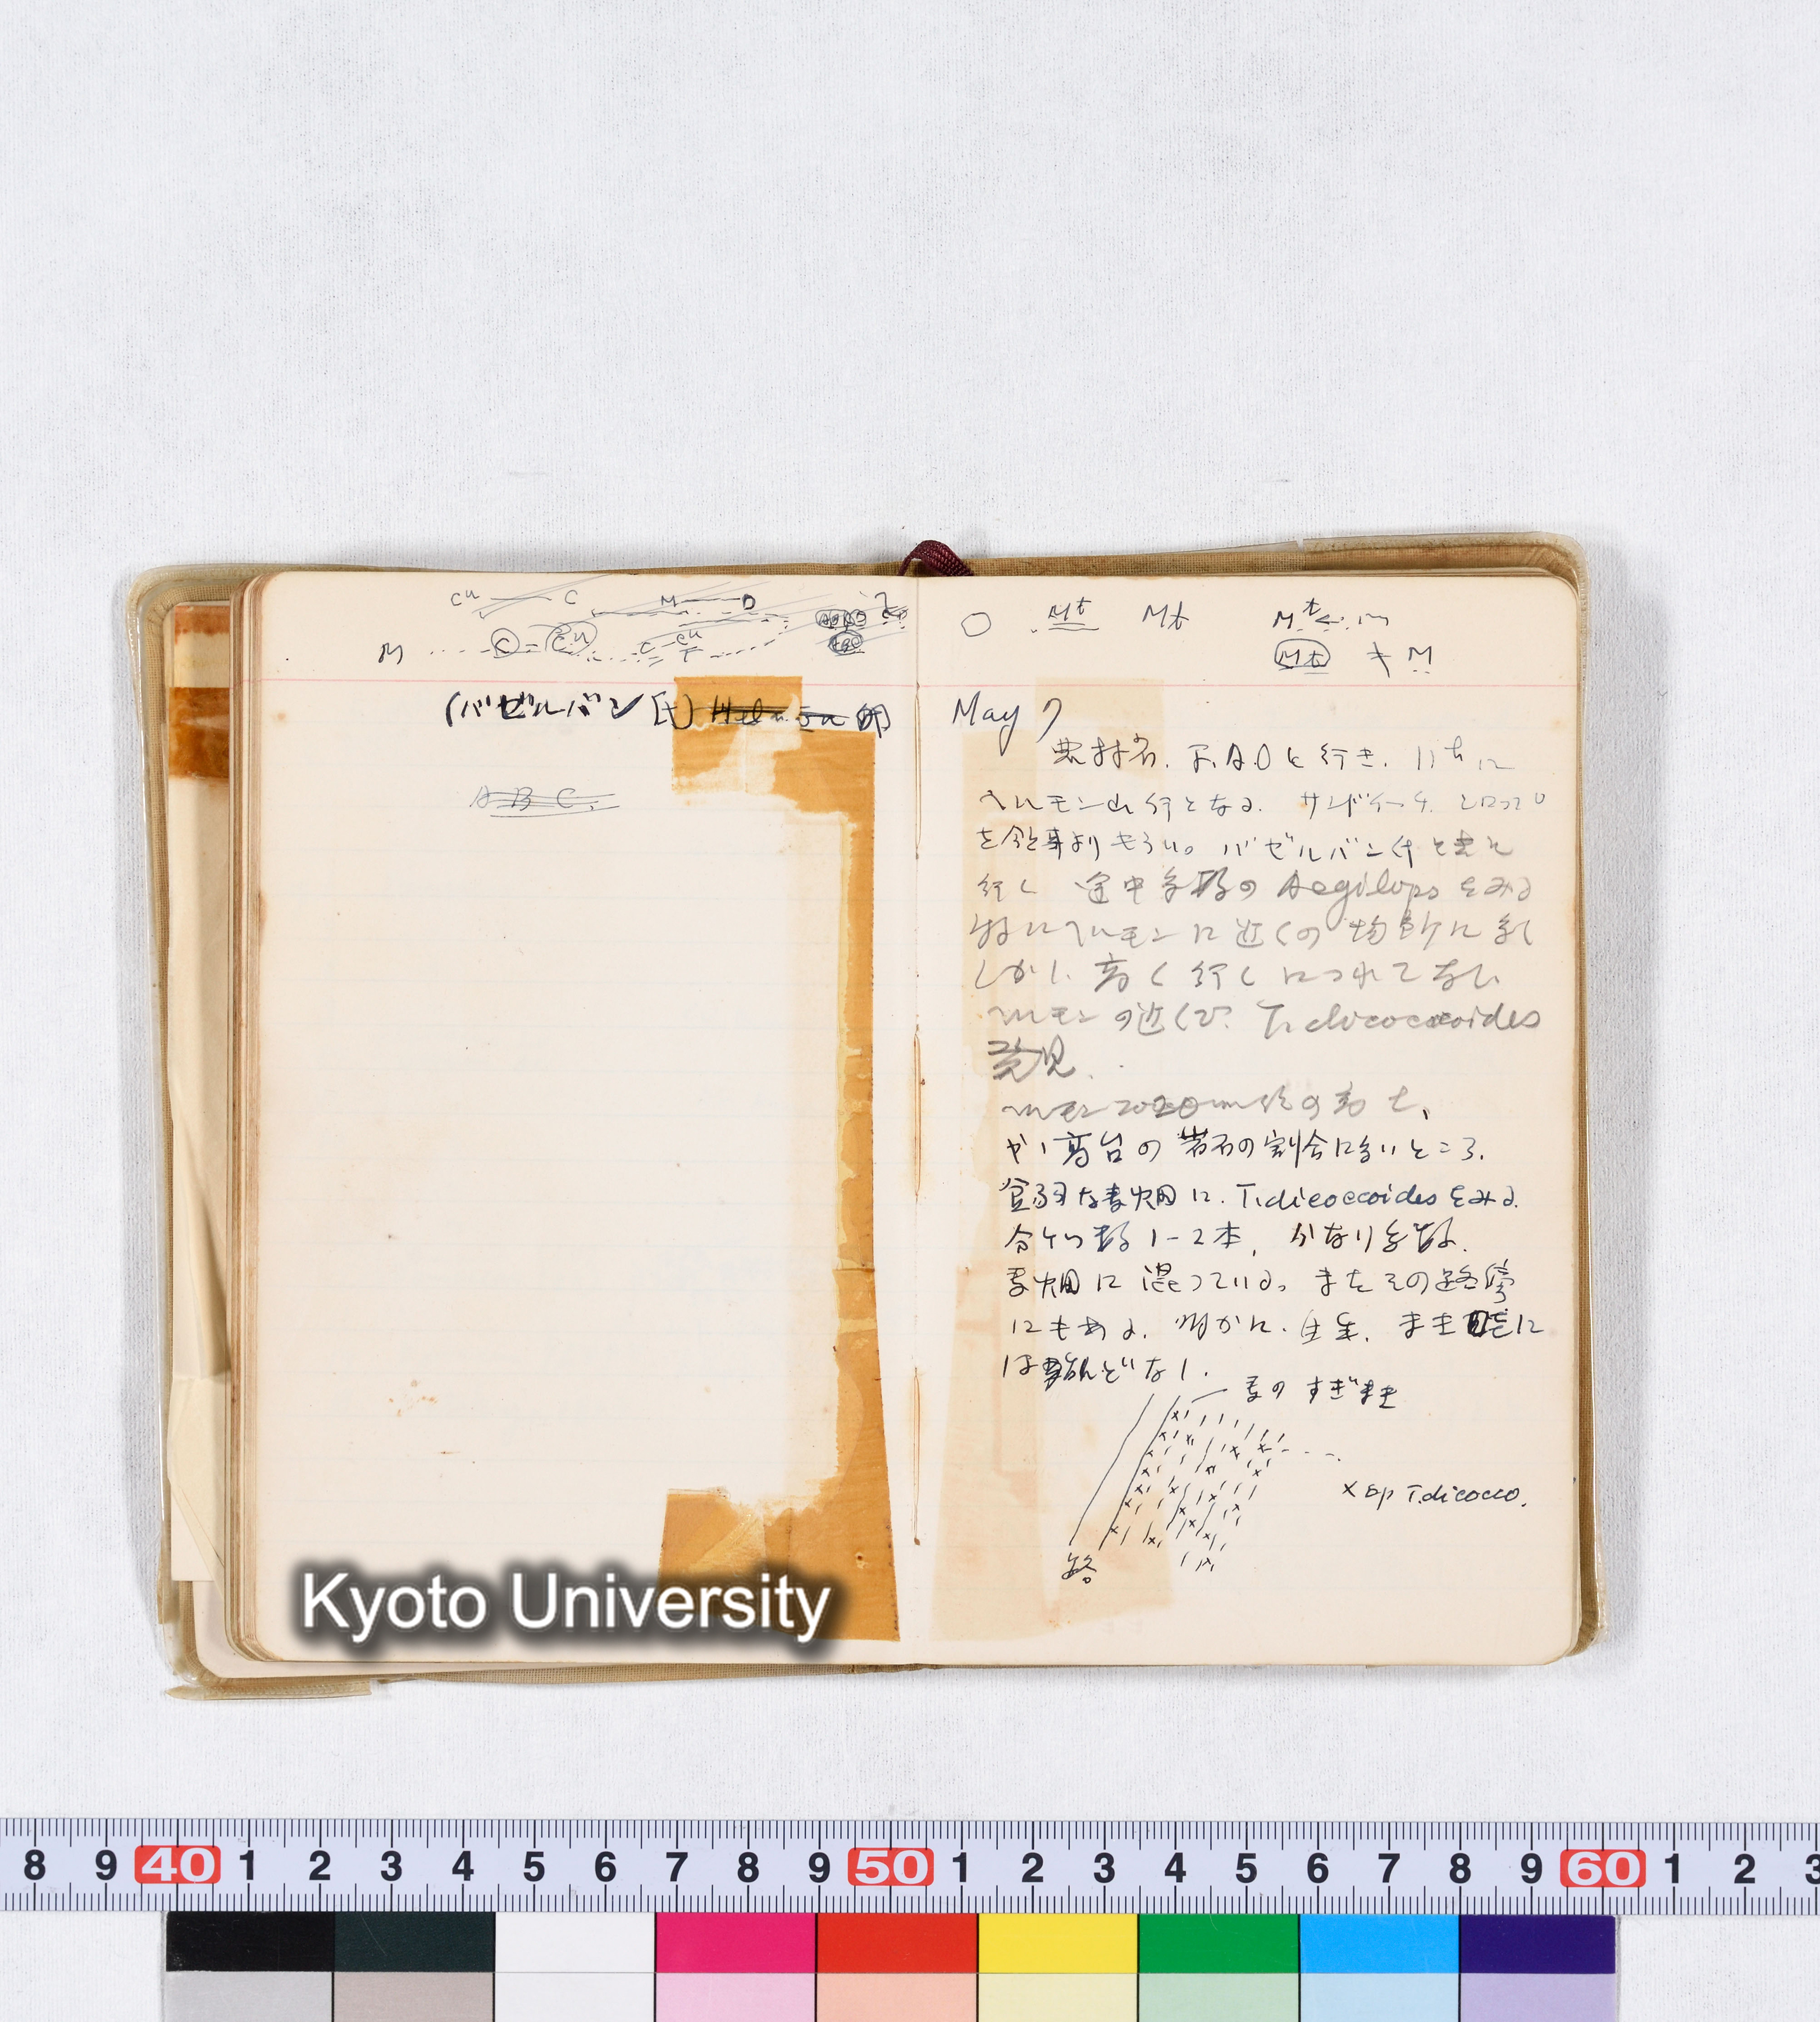 Cu C M D
M C = Cu C Cu
T
(バゼルバン氏)
A B C.
Mt Mt Mt < m
Mt ≠ M
May 7
農林省. F.A.Oに行き. 11hに
ヘルモン山行となる. サンドイーチ. シロップ
を領事よりもらい。バゼルバン氏と共に
行く 途中多数の Aegilops をみる
特にヘルモンに近くの場所に多し
しかし. 高く行くにつれてなし
ヘルモンの近くで. T. dicoccoides
発見.
ヘルモン 2020m
高台の岩石の割合に多いところ.
貧弱な麦畑に. T. dicoccoides をみる.
1-2本, かなり多数.
麦畑に混っている。またその路傍
にもある. 明かに. 自生. まき
には殆んどなし.
麦のすぢまき
x sp T. dicocco.
路
Kyoto University
8 9 40 1 2 3 4 5 6 7 8 9 50 1 2 3 4 5 6 7 8 9 60 1 2 3